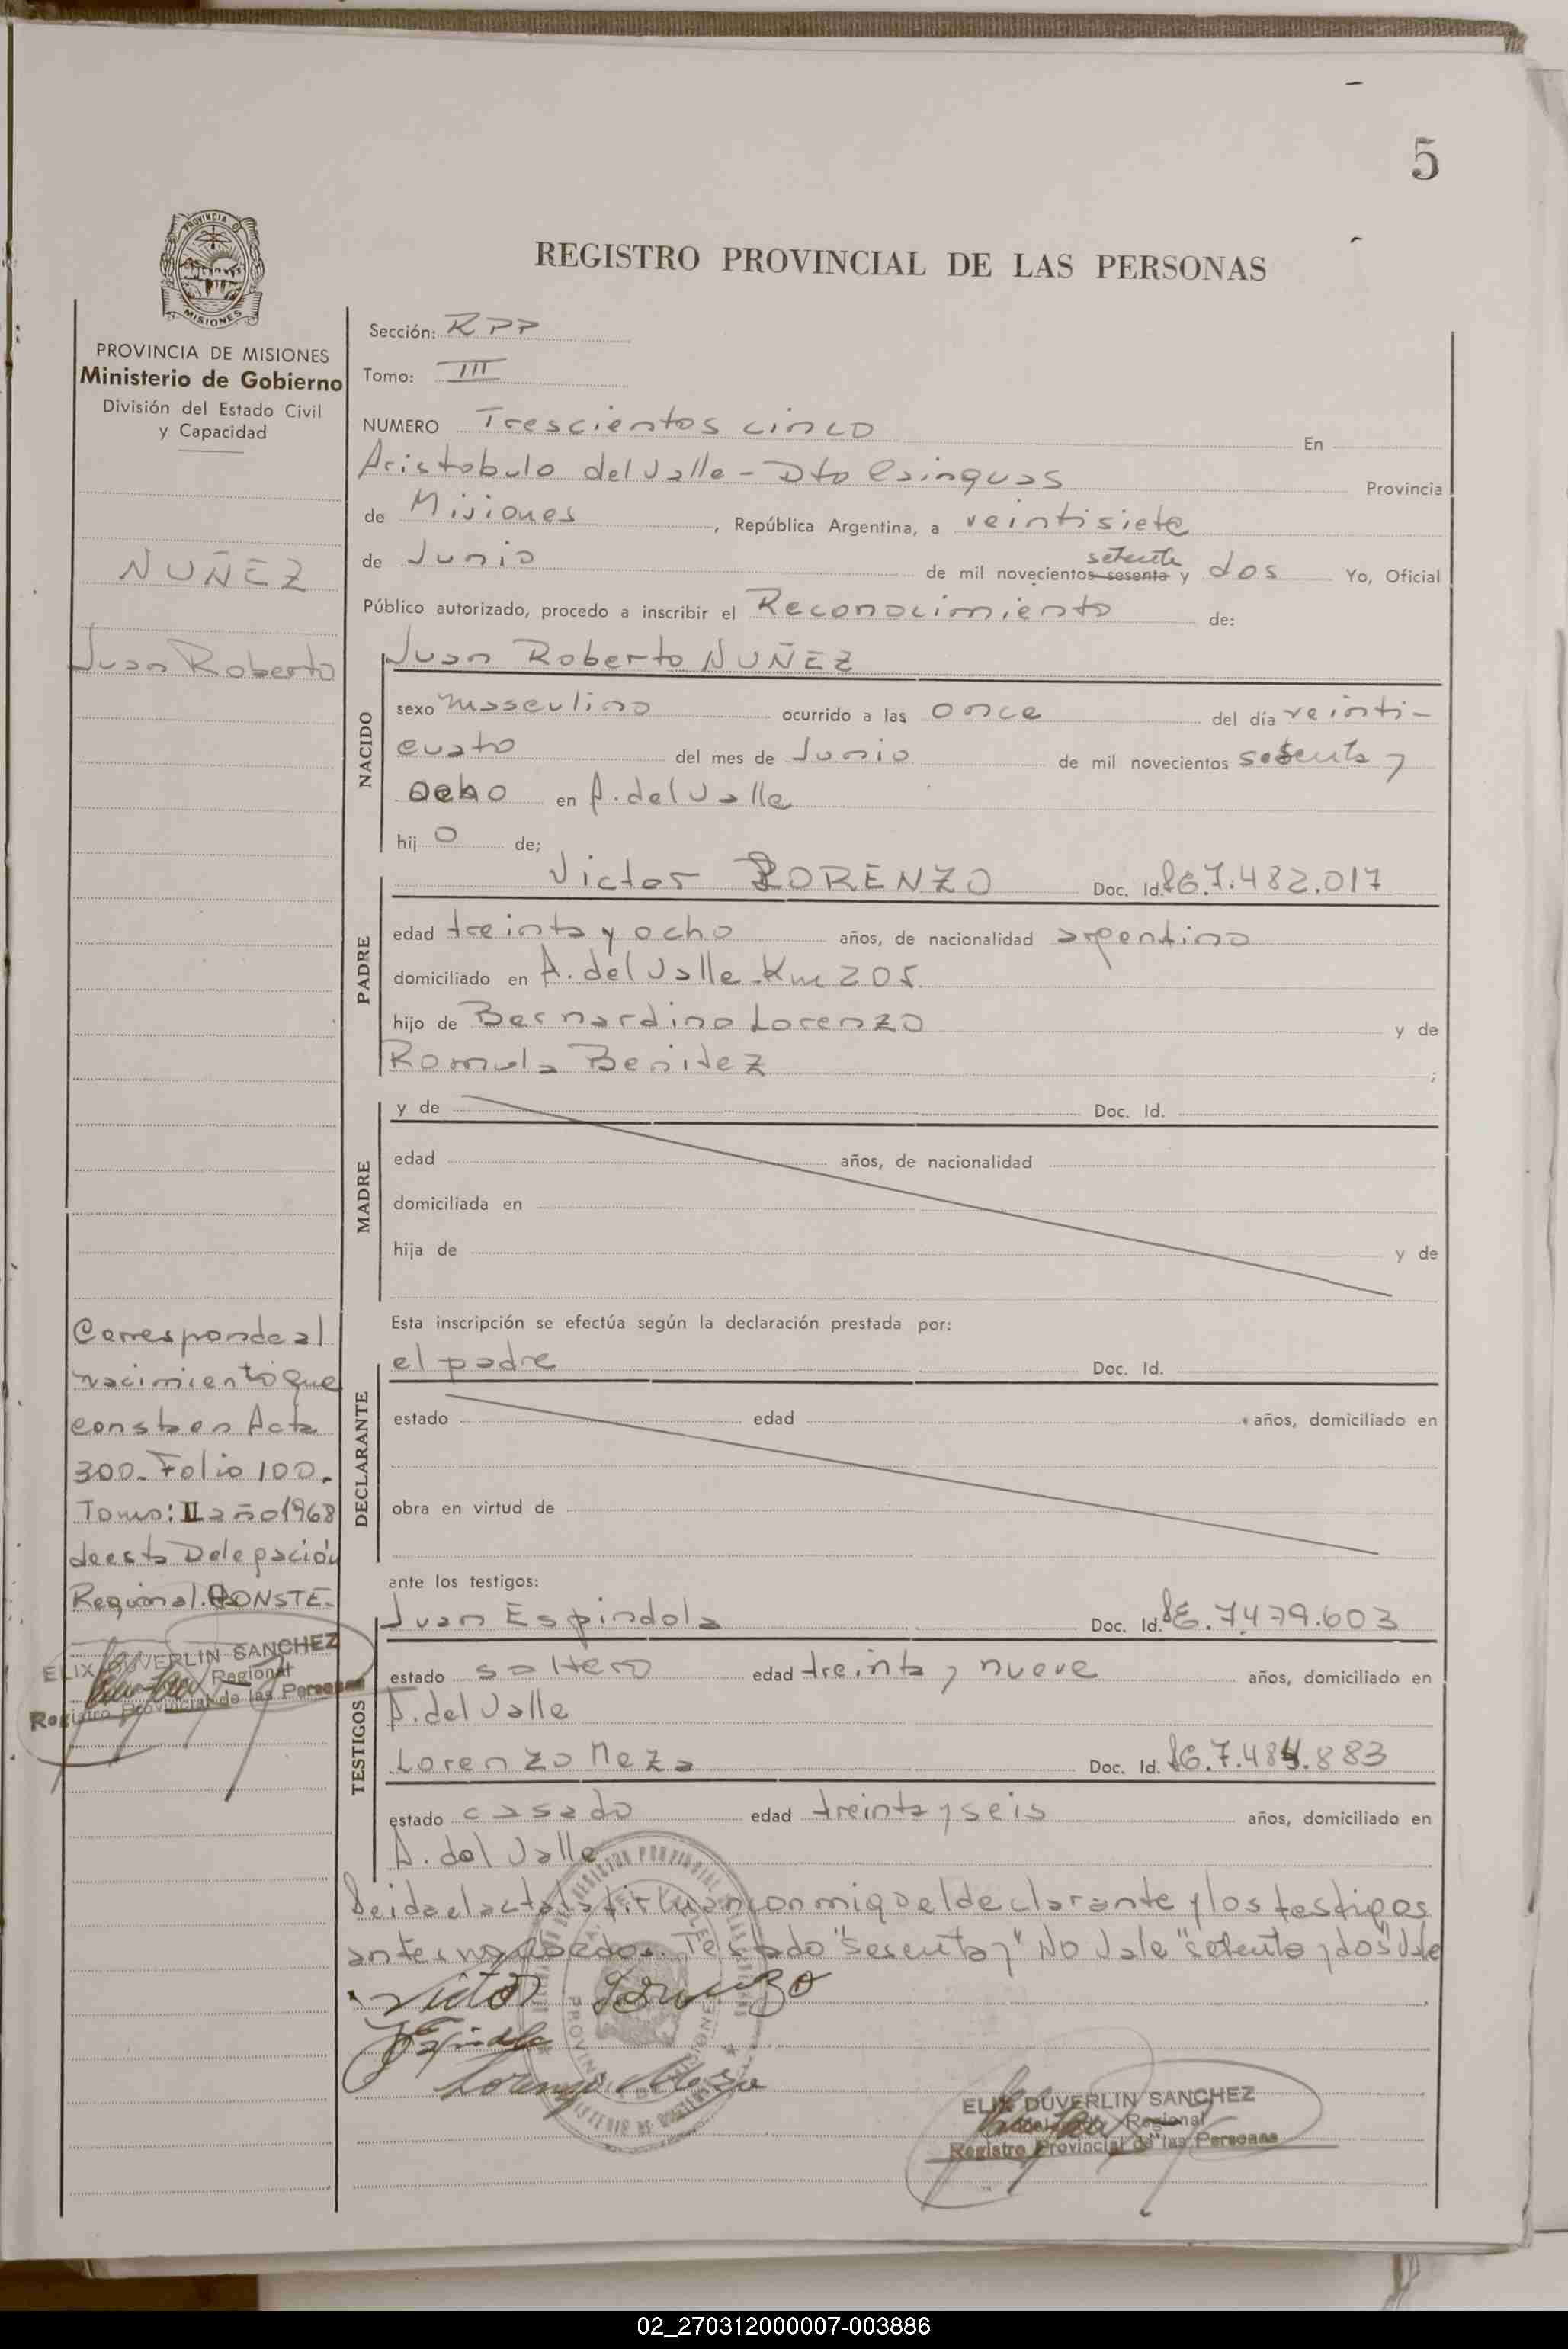 5
PROVINCIA DE
MISIONES
REGISTRO PROVINCIAL DE LAS PERSONAS
PROVINCIA DE MISIONES
Ministerio de Gobierno
División del Estado Civil
y Capacidad
NUÑEZ
Juan Roberto
Corresponde al
nacimiento que
consta en Acta
300_ Folio 100.
Tomo: II año 1968
de esta Delegación
Regional. CONSTE_
ELIX DUVERLIN SANCHEZ
Regional
Registro Provincial de las Personas
Sección: RPP
Tomo: III
NUMERO Trescientos cinco En
Aristobulo del Valle - Dto Cainguas Provincia
de Misiones, República Argentina, a veintisiete
de Junio de mil novecientos sesenta setenta y dos Yo, Oficial
Público autorizado, procedo a inscribir el Reconocimiento de:
Juan Roberto NUÑEZ
NACIDO
sexo masculino ocurrido a las once del día veinti-
cuato del mes de Junio de mil novecientos sesenta y
ocho en A. del Valle
hij o de;
PADRE
Victor LORENZO Doc. Id. LE 7.482.017
edad treinta y ocho años, de nacionalidad argentino
domiciliado en A. del Valle - Km 205
hijo de Bernardino Lorenzo y de
Romula Benitez ;
MADRE
y de Doc. Id.
edad años, de nacionalidad
domiciliada en
hija de y de
Esta inscripción se efectúa según la declaración prestada por:
DECLARANTE
el padre Doc. Id.
estado edad años, domiciliado en
obra en virtud de
ante los testigos:
TESTIGOS
Juan Espindola Doc. Id. LE. 7.479.603
estado soltero edad treinta y nueve años, domiciliado en
A. del Valle
Lorenzo Meza Doc. Id. LE. 7.484.883
estado casado edad treinta y seis años, domiciliado en
A. del Valle
Leida el acta la firman conmigo el declarante y los testigos
antes nombrados. Testado "sesenta y" No Vale "setenta y dos" Vale
Victor Lorenzo
J Espindola
Lorenzo Meza
ELIX DUVERLIN SANCHEZ
Delegado Regional
Registro Provincial de las Personas
02_270312000007-003886